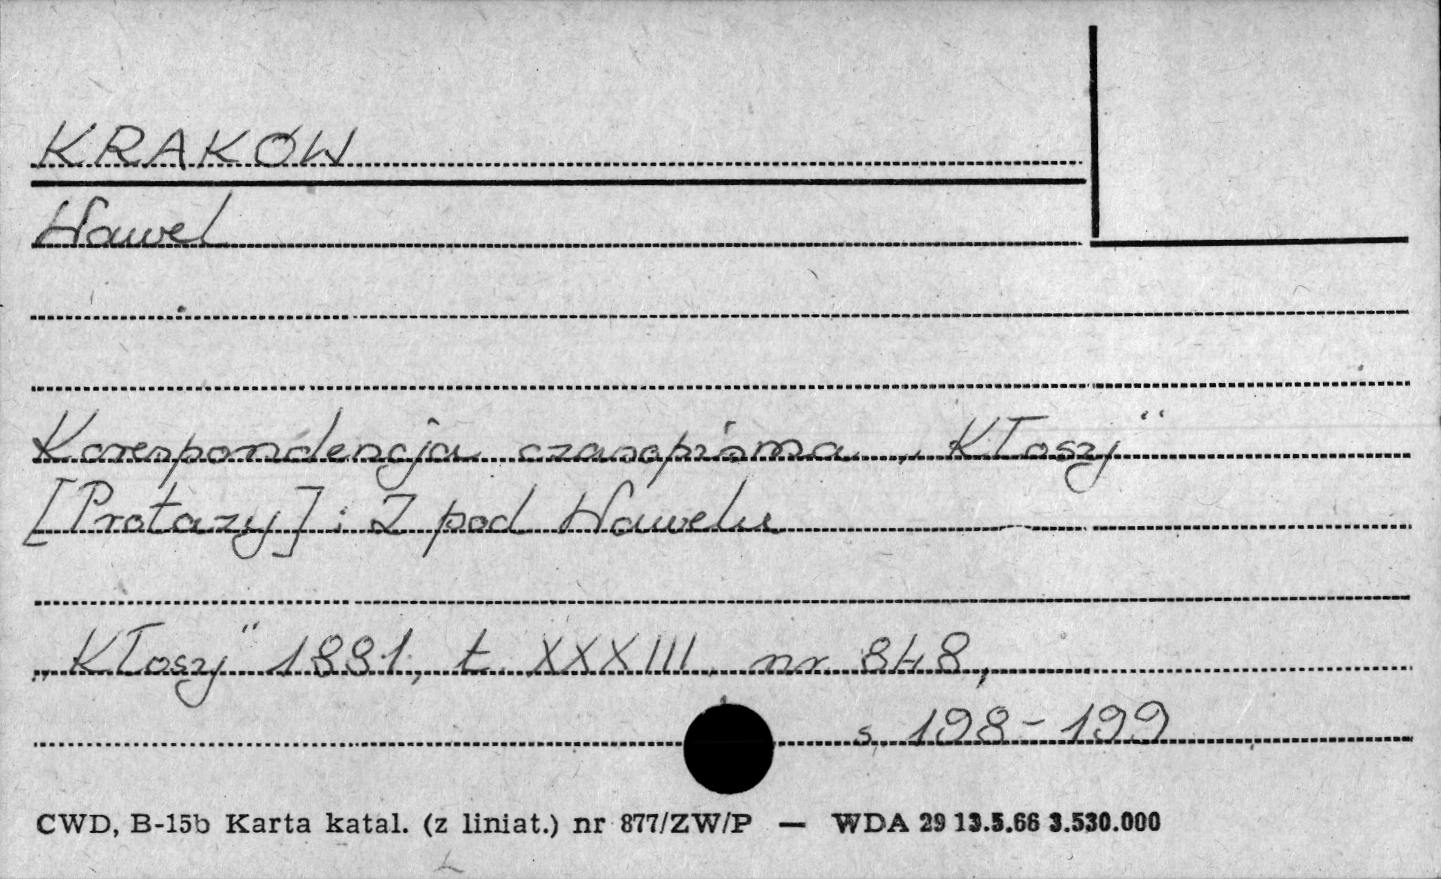 KRAKÓW
Wawel
Korespondencja czasopisma „Kłosy"
[Protazy]: Z pod Wawelu
„Kłosy" 1881, t. XXXIII, nr 848,
s. 198-199
CWD, B-15b Karta katal. (z liniat.) nr 877/ZW/P — WDA 29 13.5.66 3.530.000